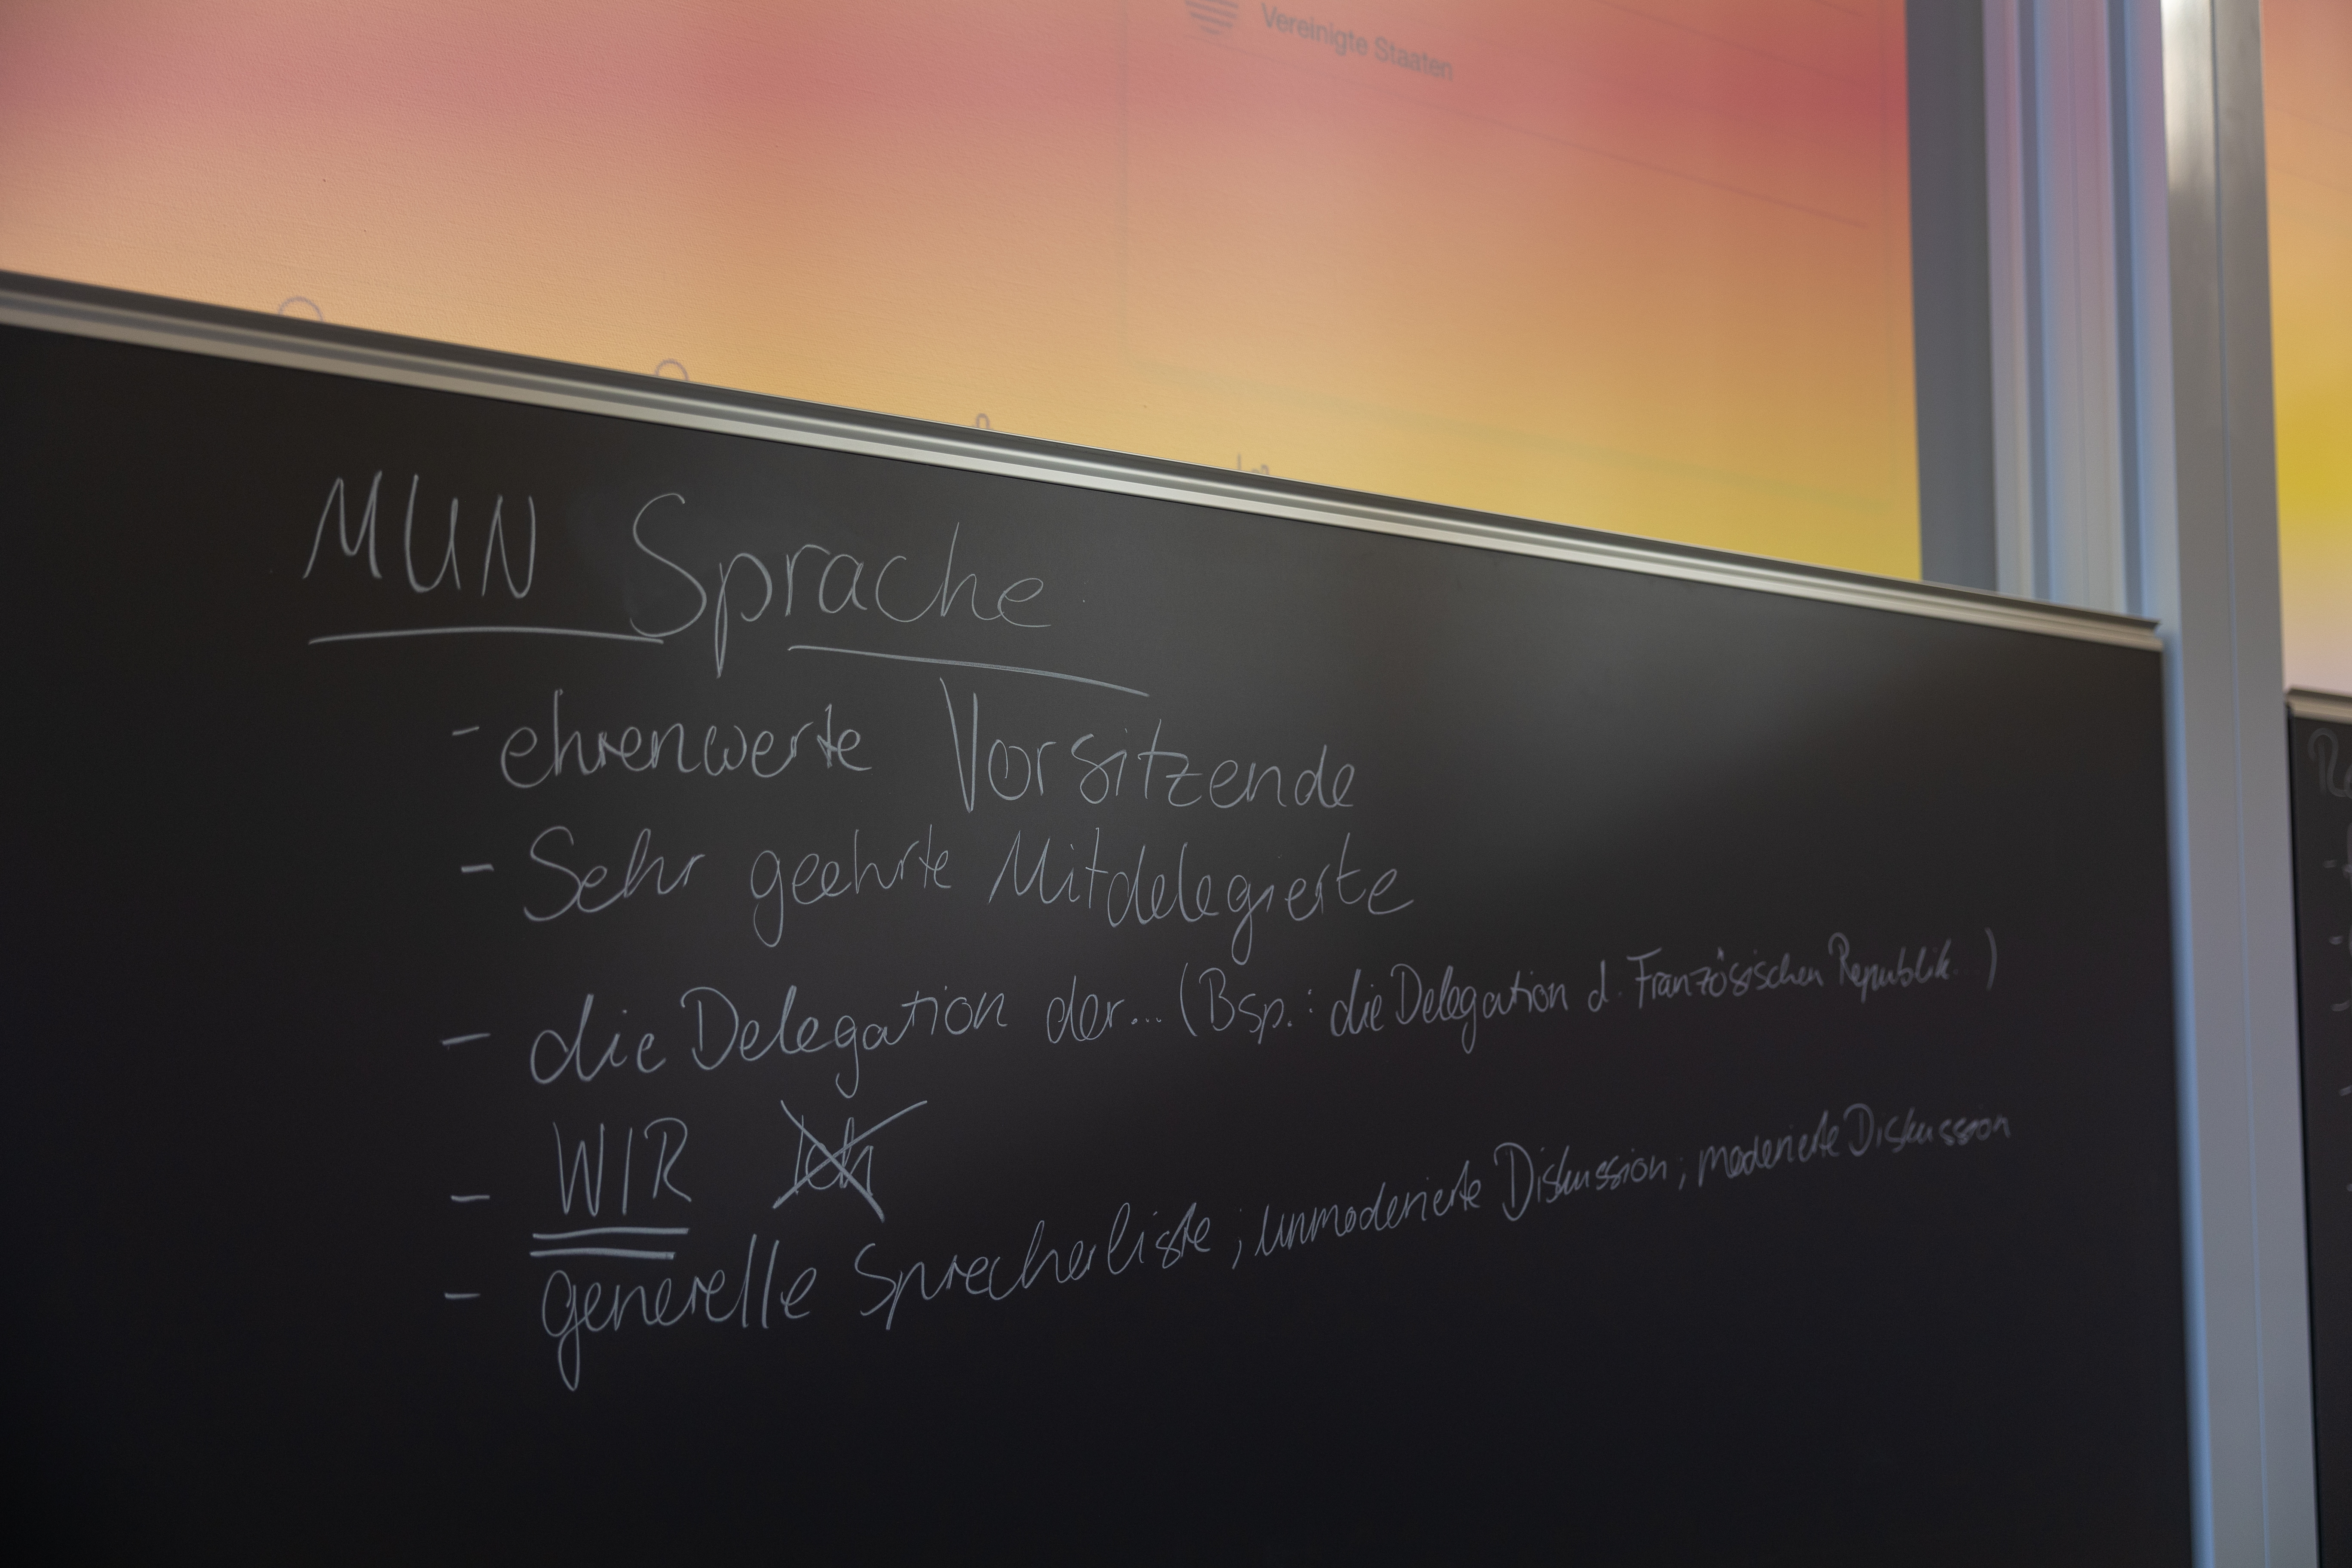 Vereinigte Staaten
MUN Sprache
- ehrenwerte Vorsitzende
- Sehr geehrte Mitdelegierte
- die Delegation der... (Bsp.: die Delegation d. Französischen Republik )
- WIR Ich
- generelle Sprecherliste ; unmoderierte Diskussion ; moderierte Diskussion